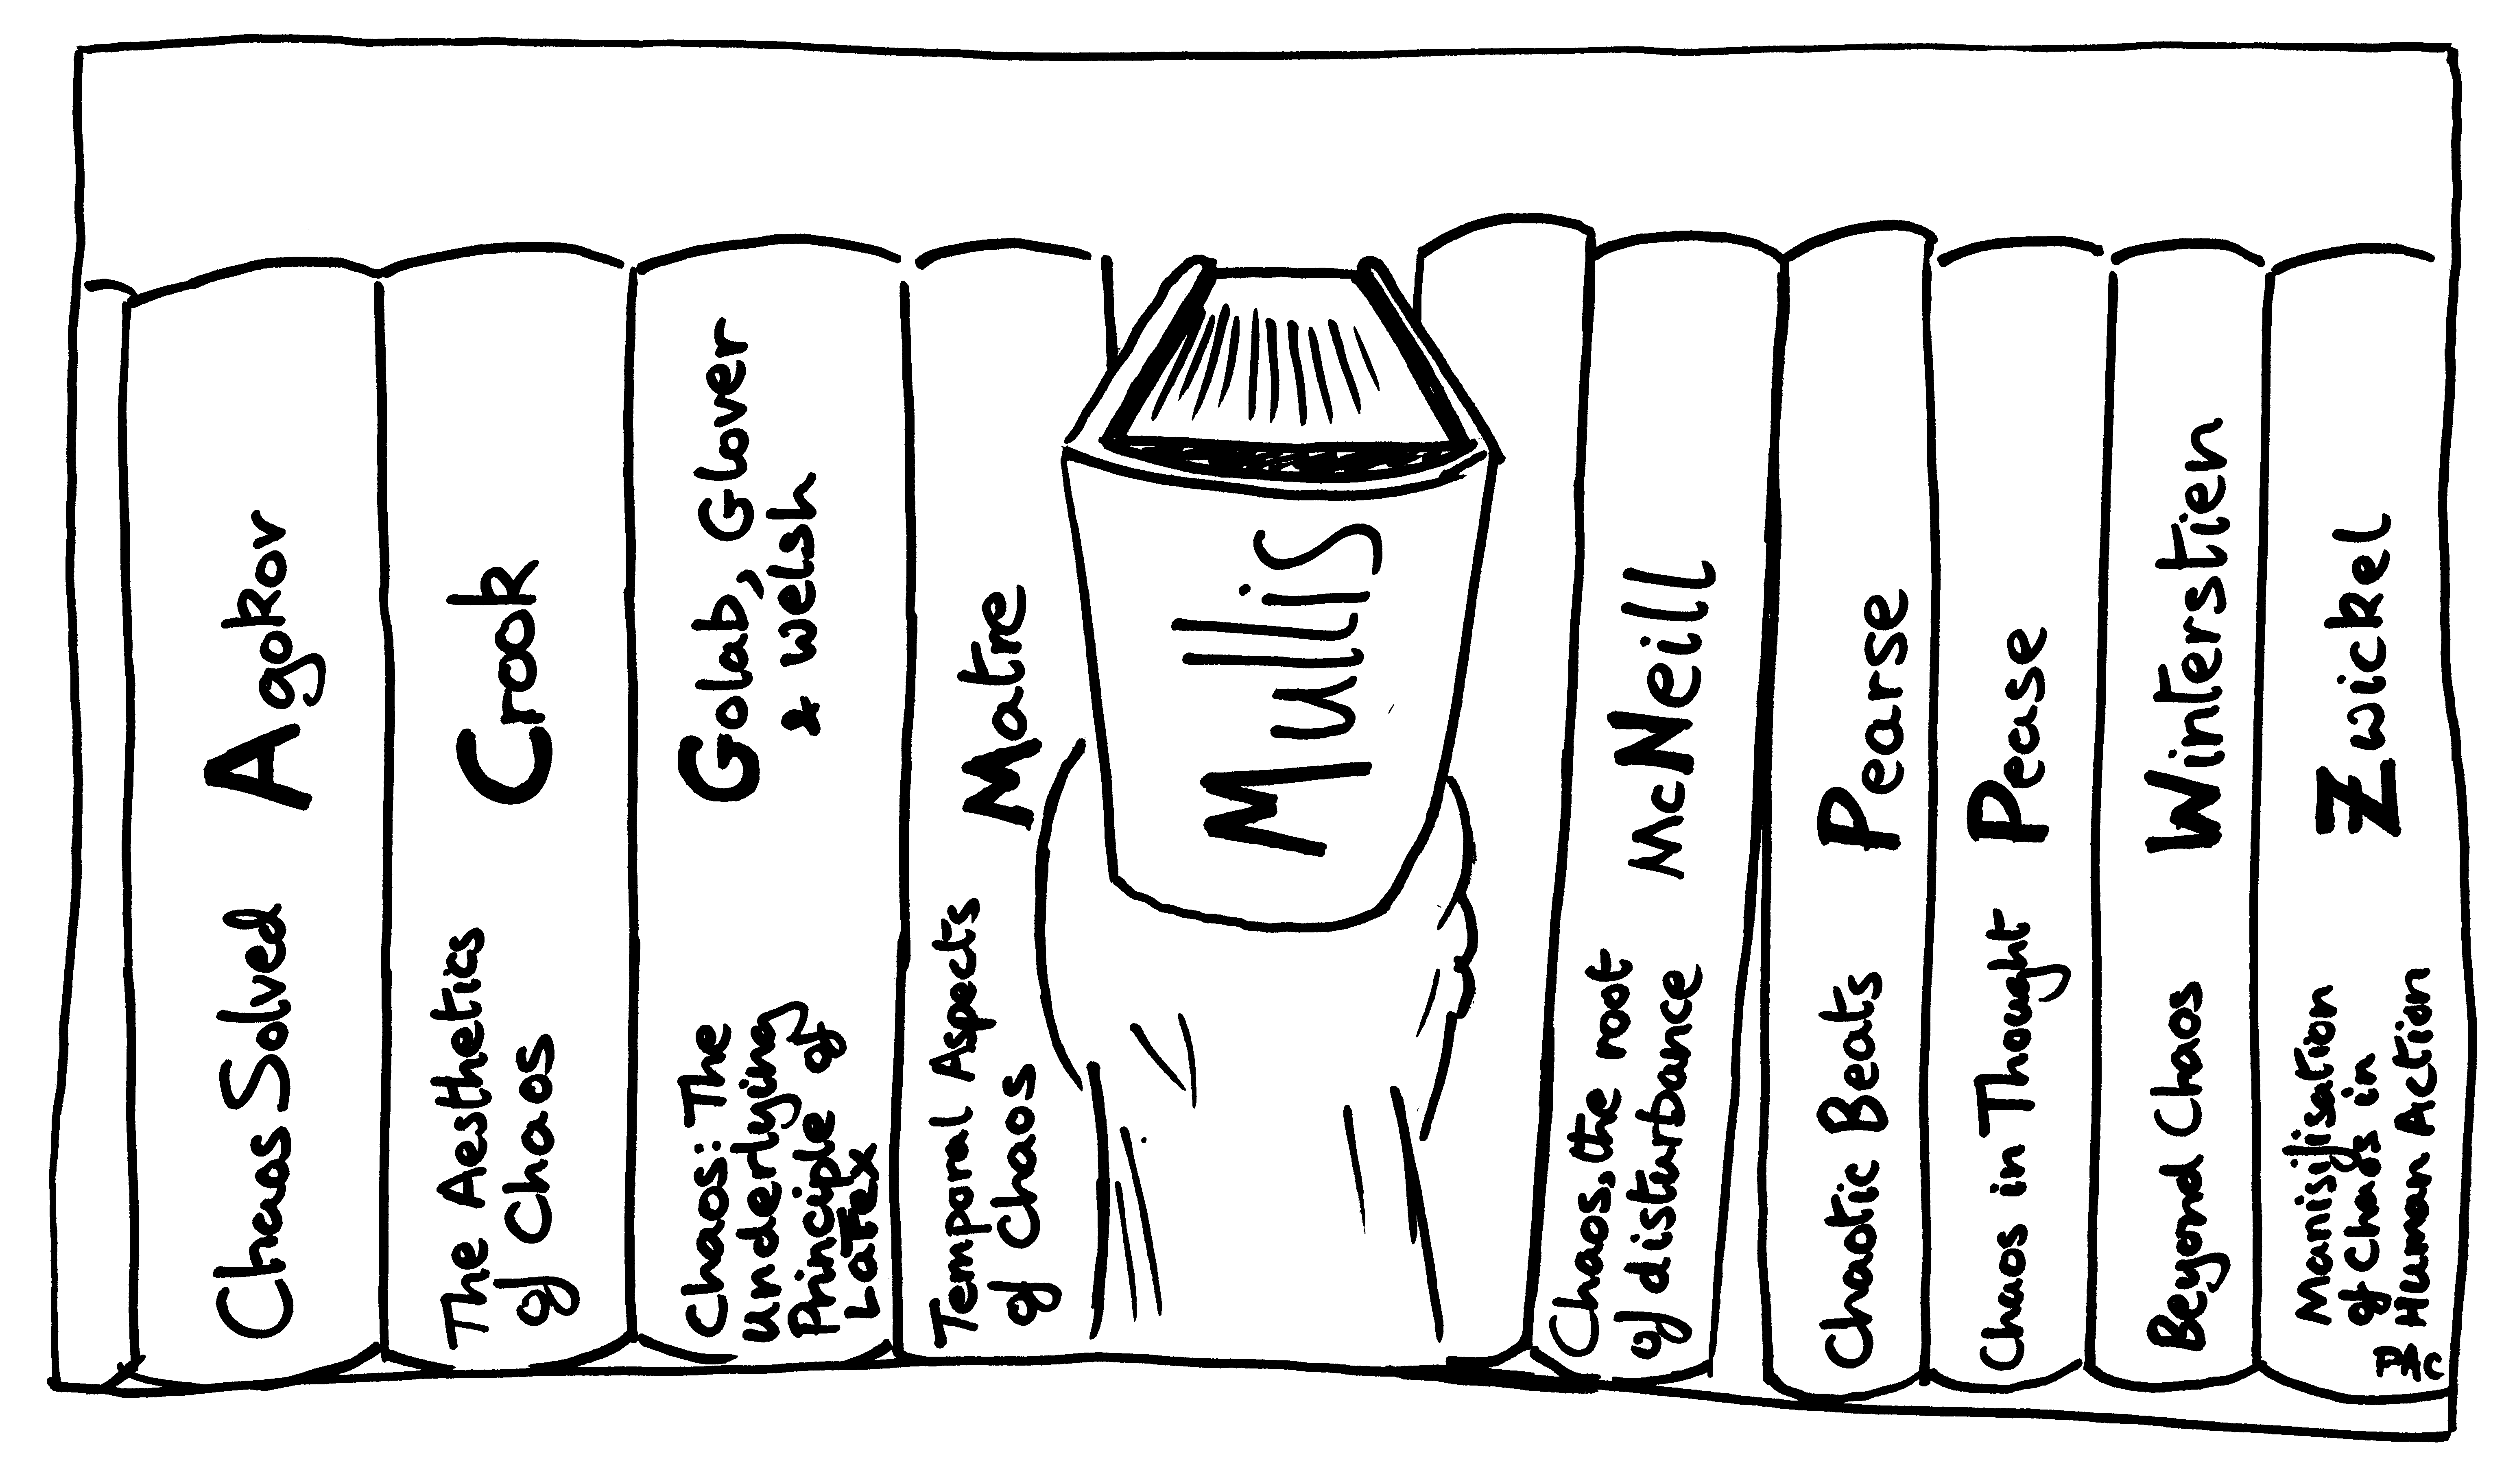 Chaos Solved Agakov
The Aesthetics
of Chaos
Crook
Chaos: The
underlying
Principle of
LaTex
Golab, Glover
& Welsh
Temporal Aspects
of Chaos
Matre
Mullis
Chaos, the root
of disturbance
McNeill
Chaotic Beats Pearse
Chaos in Thought Pease
Beyond Chaos Winterstien
of Chaos in
Human Action
Zwickel